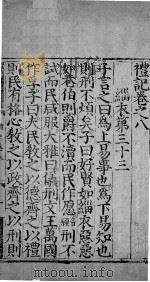 禮記卷之八
緇衣第三十三
子言之曰為上易事也為下易知也
則刑不煩矣子曰好賢如緇衣惡惡
如巷伯則爵不瀆而民作愿刑不
試而民咸服大雅曰儀刑文王萬國
作孚子曰夫民教之以德齊之以禮
則民有格心教之以政齊之以刑則
mtoou.info